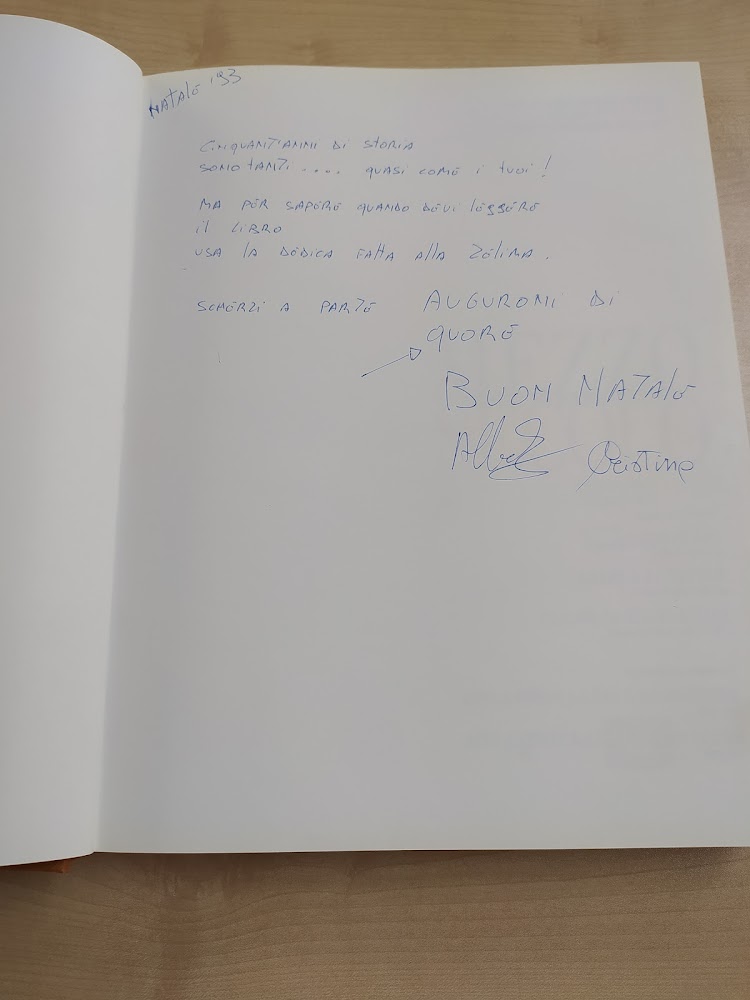 NATALE '93
CINQUANT'ANNI DI STORIA
SONO TANTI .... QUASI COME I TUOI!
MA PER SAPERE QUANDO DEVI LEGGERE
IL LIBRO
USA LA DEDICA FATTA ALLA ZELINA.
SCHERZI A PARTE AUGURONI DI
QUORE
BUON NATALE
Cristina